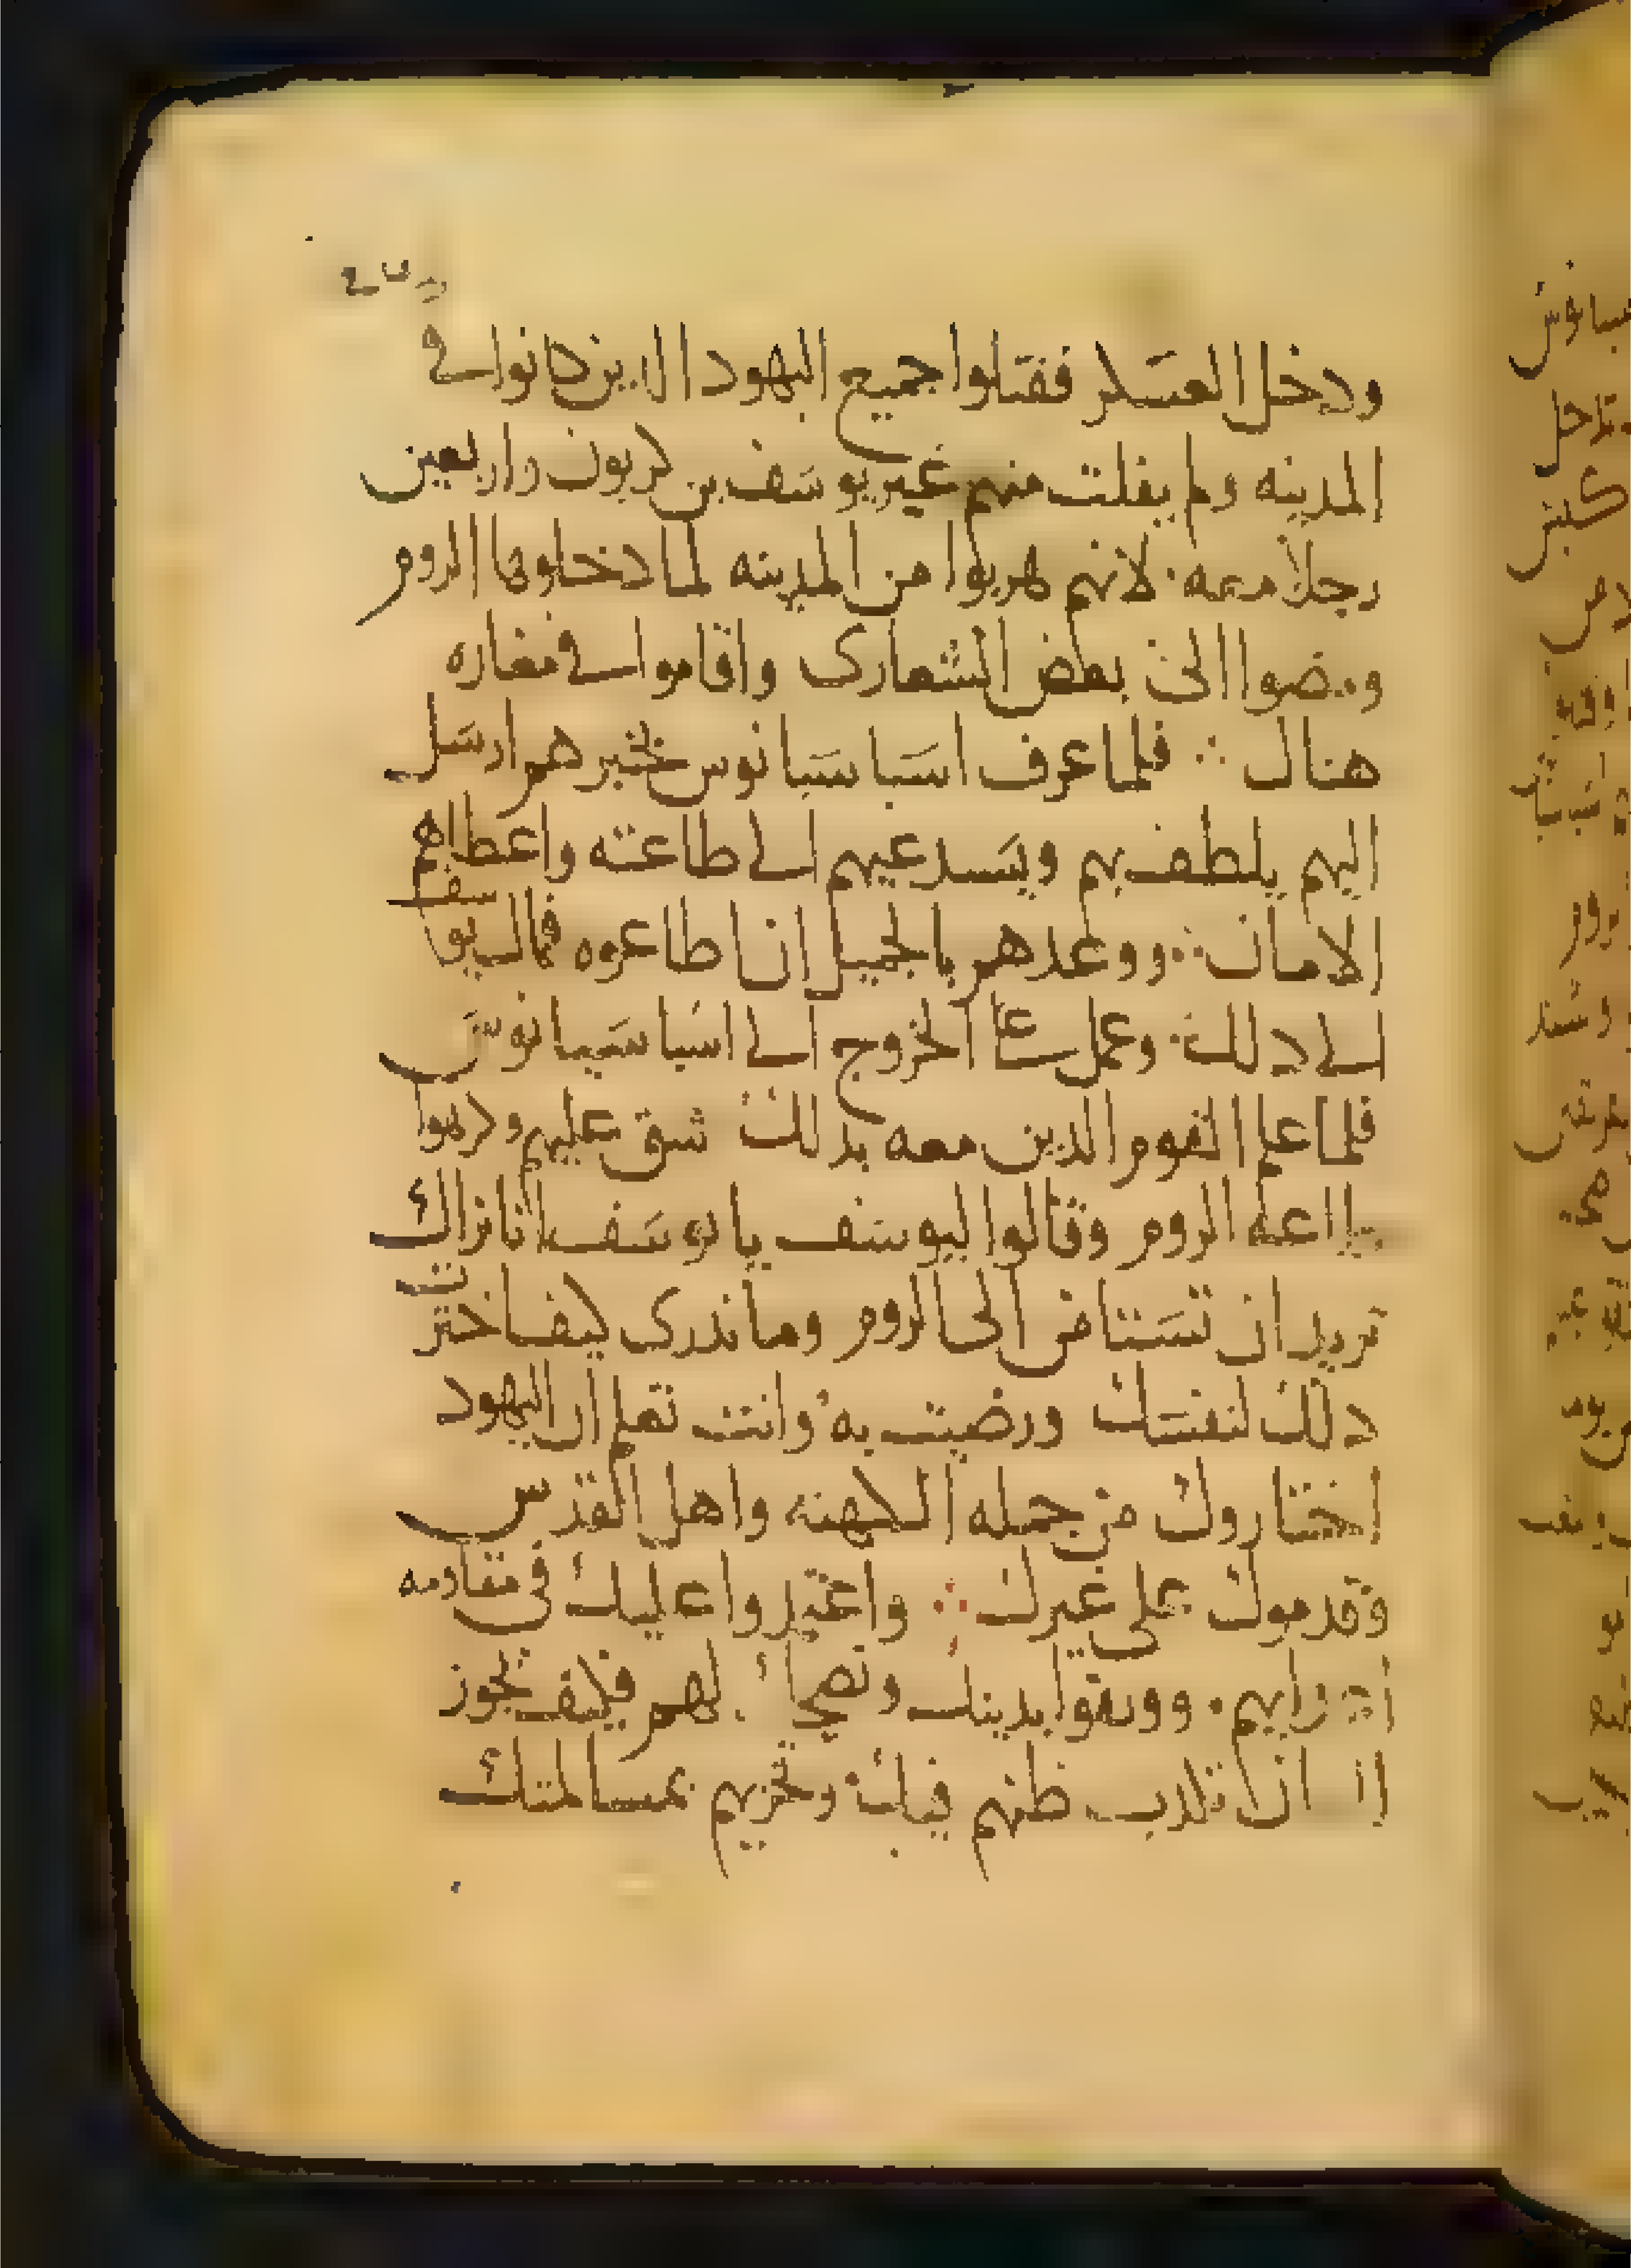 ودخل العسكر فقتلوا جميع اليهود الذين كانوا في
المدينه ولم يفلت منهم غير يوسف بن كريون واربعين
رجلا معه لانهم هربوا من المدينه لما دخلوها الروم
ومضوا الى بعض الشعارى واقاموا في مغاره
هناك فلما عرف اسباسيانوس بخبرهم ارسل
اليهم يلطف بهم ويستدعيهم الى طاعته واعطاهم
الامان ووعدهم بالجميل ان اطاعوه فمال يوسف
الى ذلك وعمل على الخروج الى اسباسيانوس
فلما علم القوم الذين معه بذلك شق عليهم وكرهوا
طاعه الروم وقالوا ليوسف يا يوسف اننا نراك
تريد ان تستامن الى الروم وما ندرى كيف اخترت
ذلك لنفسك ورضيت به وانت تعلم ان اليهود
اختاروك من جمله الكهنه واهل القدس
وقدموك على غيرك واعتمدوا عليك في مقاومه
ووثقوا بدينك لهم فكيف يجوز
ان تكذب ظنهم فيك وتخزيهم بمسالمتك